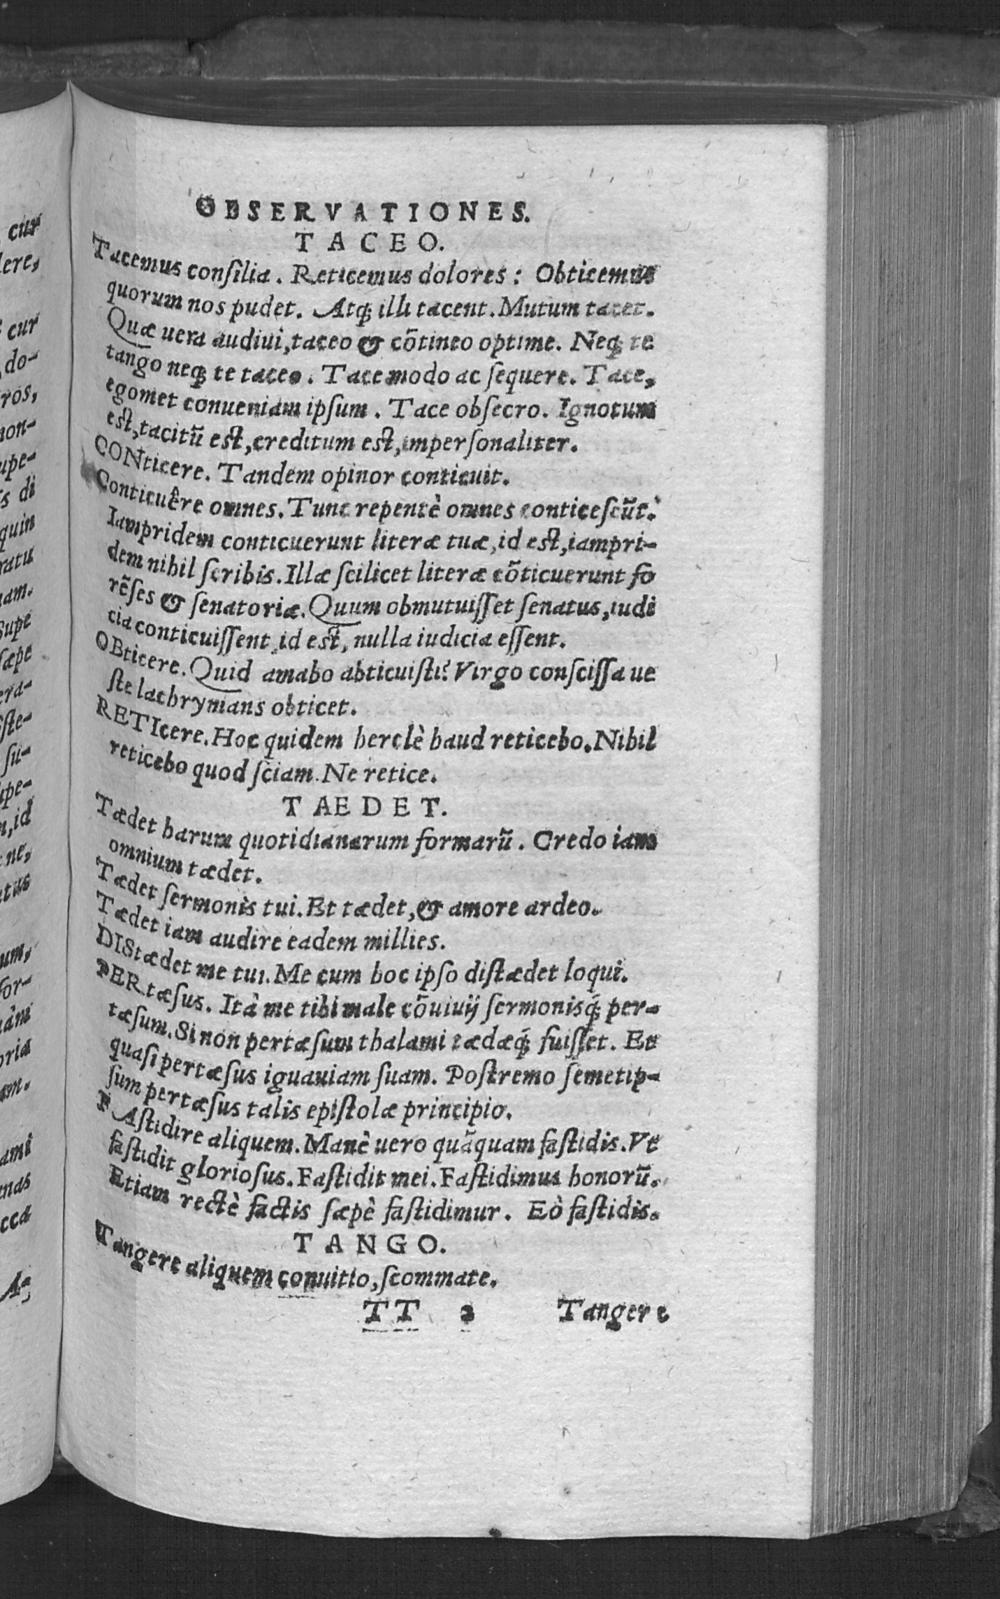 OBSERVATIONES.
TACEO.
Tacemus consilia. Reticemus dolores: Obticemus
quorum nos pudet. Atq; illi tacent. Mutum tacet.
Quæ uera audiui, taceo & cõtineo optime. Neq; te
tango neq; te taceo. Tace modo ac sequere. Tace,
egomet conueniam ipsum. Tace obsecro. Ignotum
est, tacitũ est, creditum est, impersonaliter.
CONticere. Tandem opinor conticuit.
Conticuêre omnes. Tunc repentè omnes conticescũt.
Iampridem conticuerunt literæ tuæ, id est, iampri-
dem nihil scribis. Illæ scilicet literæ cõticuerunt fo
rẽses & senatoriæ. Quum obmutuisset senatus, iudi
cia conticuissent, id est, nulla iudicia essent.
OBticere. Quid amabo obticuisti? Virgo conscissa ue
ste lachrymans obticet.
RETIcere. Hoc quidem herclè haud reticebo. Nihil
reticebo quod sciam. Ne retice.
TAEDET.
Tædet harum quotidianarum formarũ. Credo iam
omnium tædet.
Tædet sermonis tui. Et tædet, & amore ardeo.
Tædet iam audire eadem millies.
DIStædet me tui. Me cum hoc ipso distædet loqui.
PERtæsus. Ità me tibi male cõuiuij sermonisq́; per-
tæsum. Si non pertæsum thalami tædæq́; fuisset. Et
quasi pertæsus ignauiam suam. Postremo semetip-
sum pertæsus talis epistolæ principio.
FAstidire aliquem. Manè uero quãquam fastidis. Vt
fastidit gloriosus. Fastidit mei. Fastidimus bonorũ.
Etiam rectè factis sæpè fastidimur. Eò fastidis.
TANGO.
Tangere aliquem conuitio, scommate.
TT 2 Tangere
cur
dere,
cur
do-
ros,
non-
upe-
di
quin
am.
supe
sæpe
era-
ste-
su-
upe-
n, id
ne,
um,
for-
oria
am.